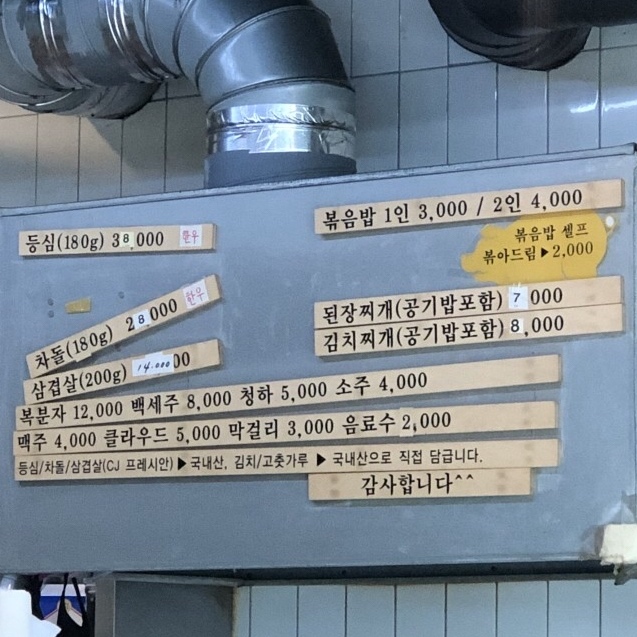 등심(180g) 38,000 한우
차돌(180g) 28,000 한우
삼겹살(200g) 14.000
복음밥 1인 3,000 / 2인 4,000
볶음밥 셀프
볶아드림▶2,000
된장찌개(공기밥포함) 7,000
김치찌개(공기밥포함) 8,000
복분자 12,000 백세주 8,000 청하 5,000 소주 4,000
맥주 4,000 클라우드 5,000 막걸리 3,000 음료수 2,000
등심/차돌/삼겹살(CJ 프레시안) ▶국내산, 김치/고춧가루 ▶ 국내산으로 직접 담급니다.
감사합니다^^